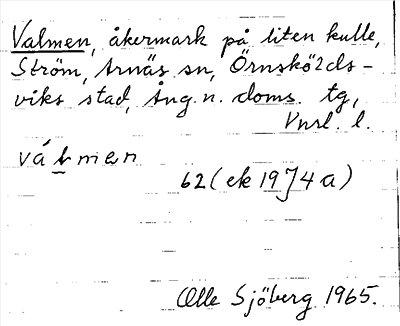 Valmen, åkermark på liten kulle,
Ström, Arnäs sn, Örnskölds-
viks stad, Ång. n. doms. tg,
Vnrl. l.
válmen
62 (ek 19 J 4 a)
Olle Sjöberg 1965.